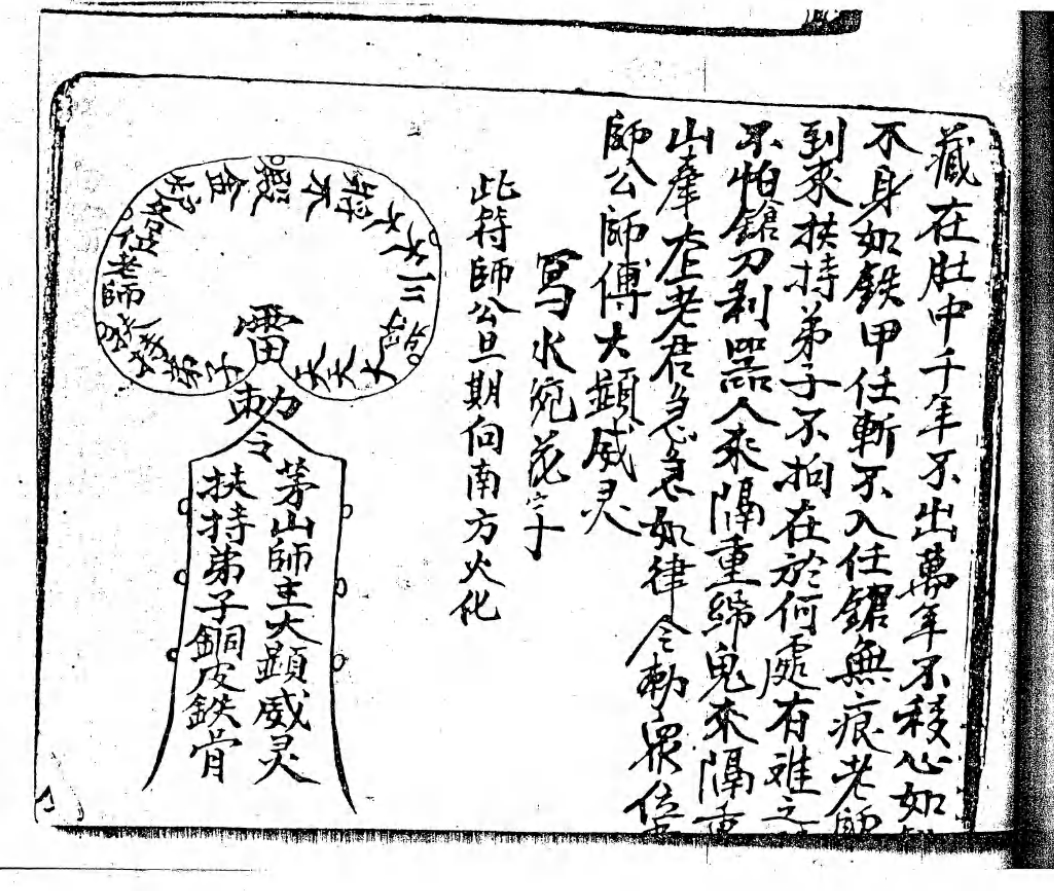 藏在肚中千年不出萬年不移心如
不身如鉄甲任斬不入任鎗無痕老師
到來扶持弟子不拘在於何處有难之
不怕鎗刀利器人來隔重綿鬼來隔重
山奉太上老君急急如律令勅眾位
師公師傅大顕威灵
寫水碗花字
此符師公旦期向南方火化
雷
勅令
茅山師主大顕威灵
扶持弟子銅皮鉄骨
老師
弟子